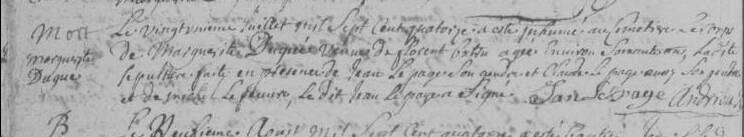 Mort Le vingtvnieme Juillet mil Sept Cent quatorze a este Inhumé au Semetiere le Corps
marguerite de Marguerite Duque veuve de florent age Environ Soixante ans, Ladite
Duque sepulture faite en presence de Jean Le page Son gendre et Claude Le page aussy Son gendre
et de Le fleuvre, Le dit Jean Le page a Signe Jan Le page Andrieu
B Le Neufieme Aoust mil Sept Cent quatorze a esté